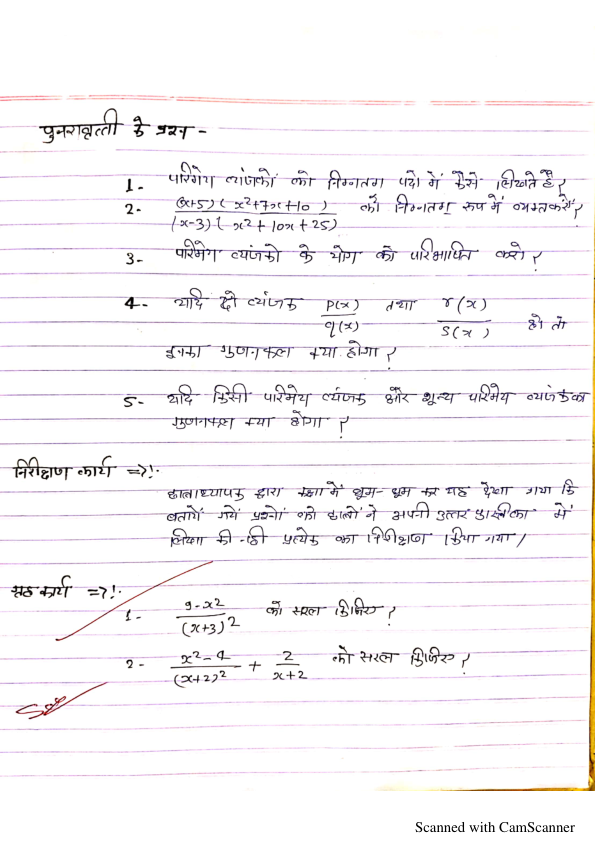 पुनरावृत्ती के प्रश्न -
1- परिमेय व्यंजकों को निम्नतम पदो में कैसे लिखते है?
2- (x+5) (x²+7x+10) / (x-3) (x²+10x+25) को निम्नतम रूप में व्यक्त करो?
3- परिमेय व्यंजको के योग को परिभाषित करो?
4- यदि दो व्यंजक p(x)/q(x) तथा r(x)/s(x) हो तो
इनका गुणनफल क्या होगा?
5- यदि किसी परिमेय व्यंजक और शून्य परिमेय व्यंजक का
गुणनफल क्या होगा?
निरीक्षण कार्य =>!·
छात्राध्यापक द्वारा कक्षा में घूम-घूम कर यह देखा गया कि
बताये गये प्रश्नों को छात्रों ने अपनी उत्तर पुस्तिका में
लिखा की नही प्रत्येक का निरीक्षण किया गया/
गृह कार्य =>!·
1- 9-x² / (x+3)² को सरल किजिए?
2- x²-4 / (x+2)² + 2 / x+2 को सरल किजिए?
Scanned with CamScanner